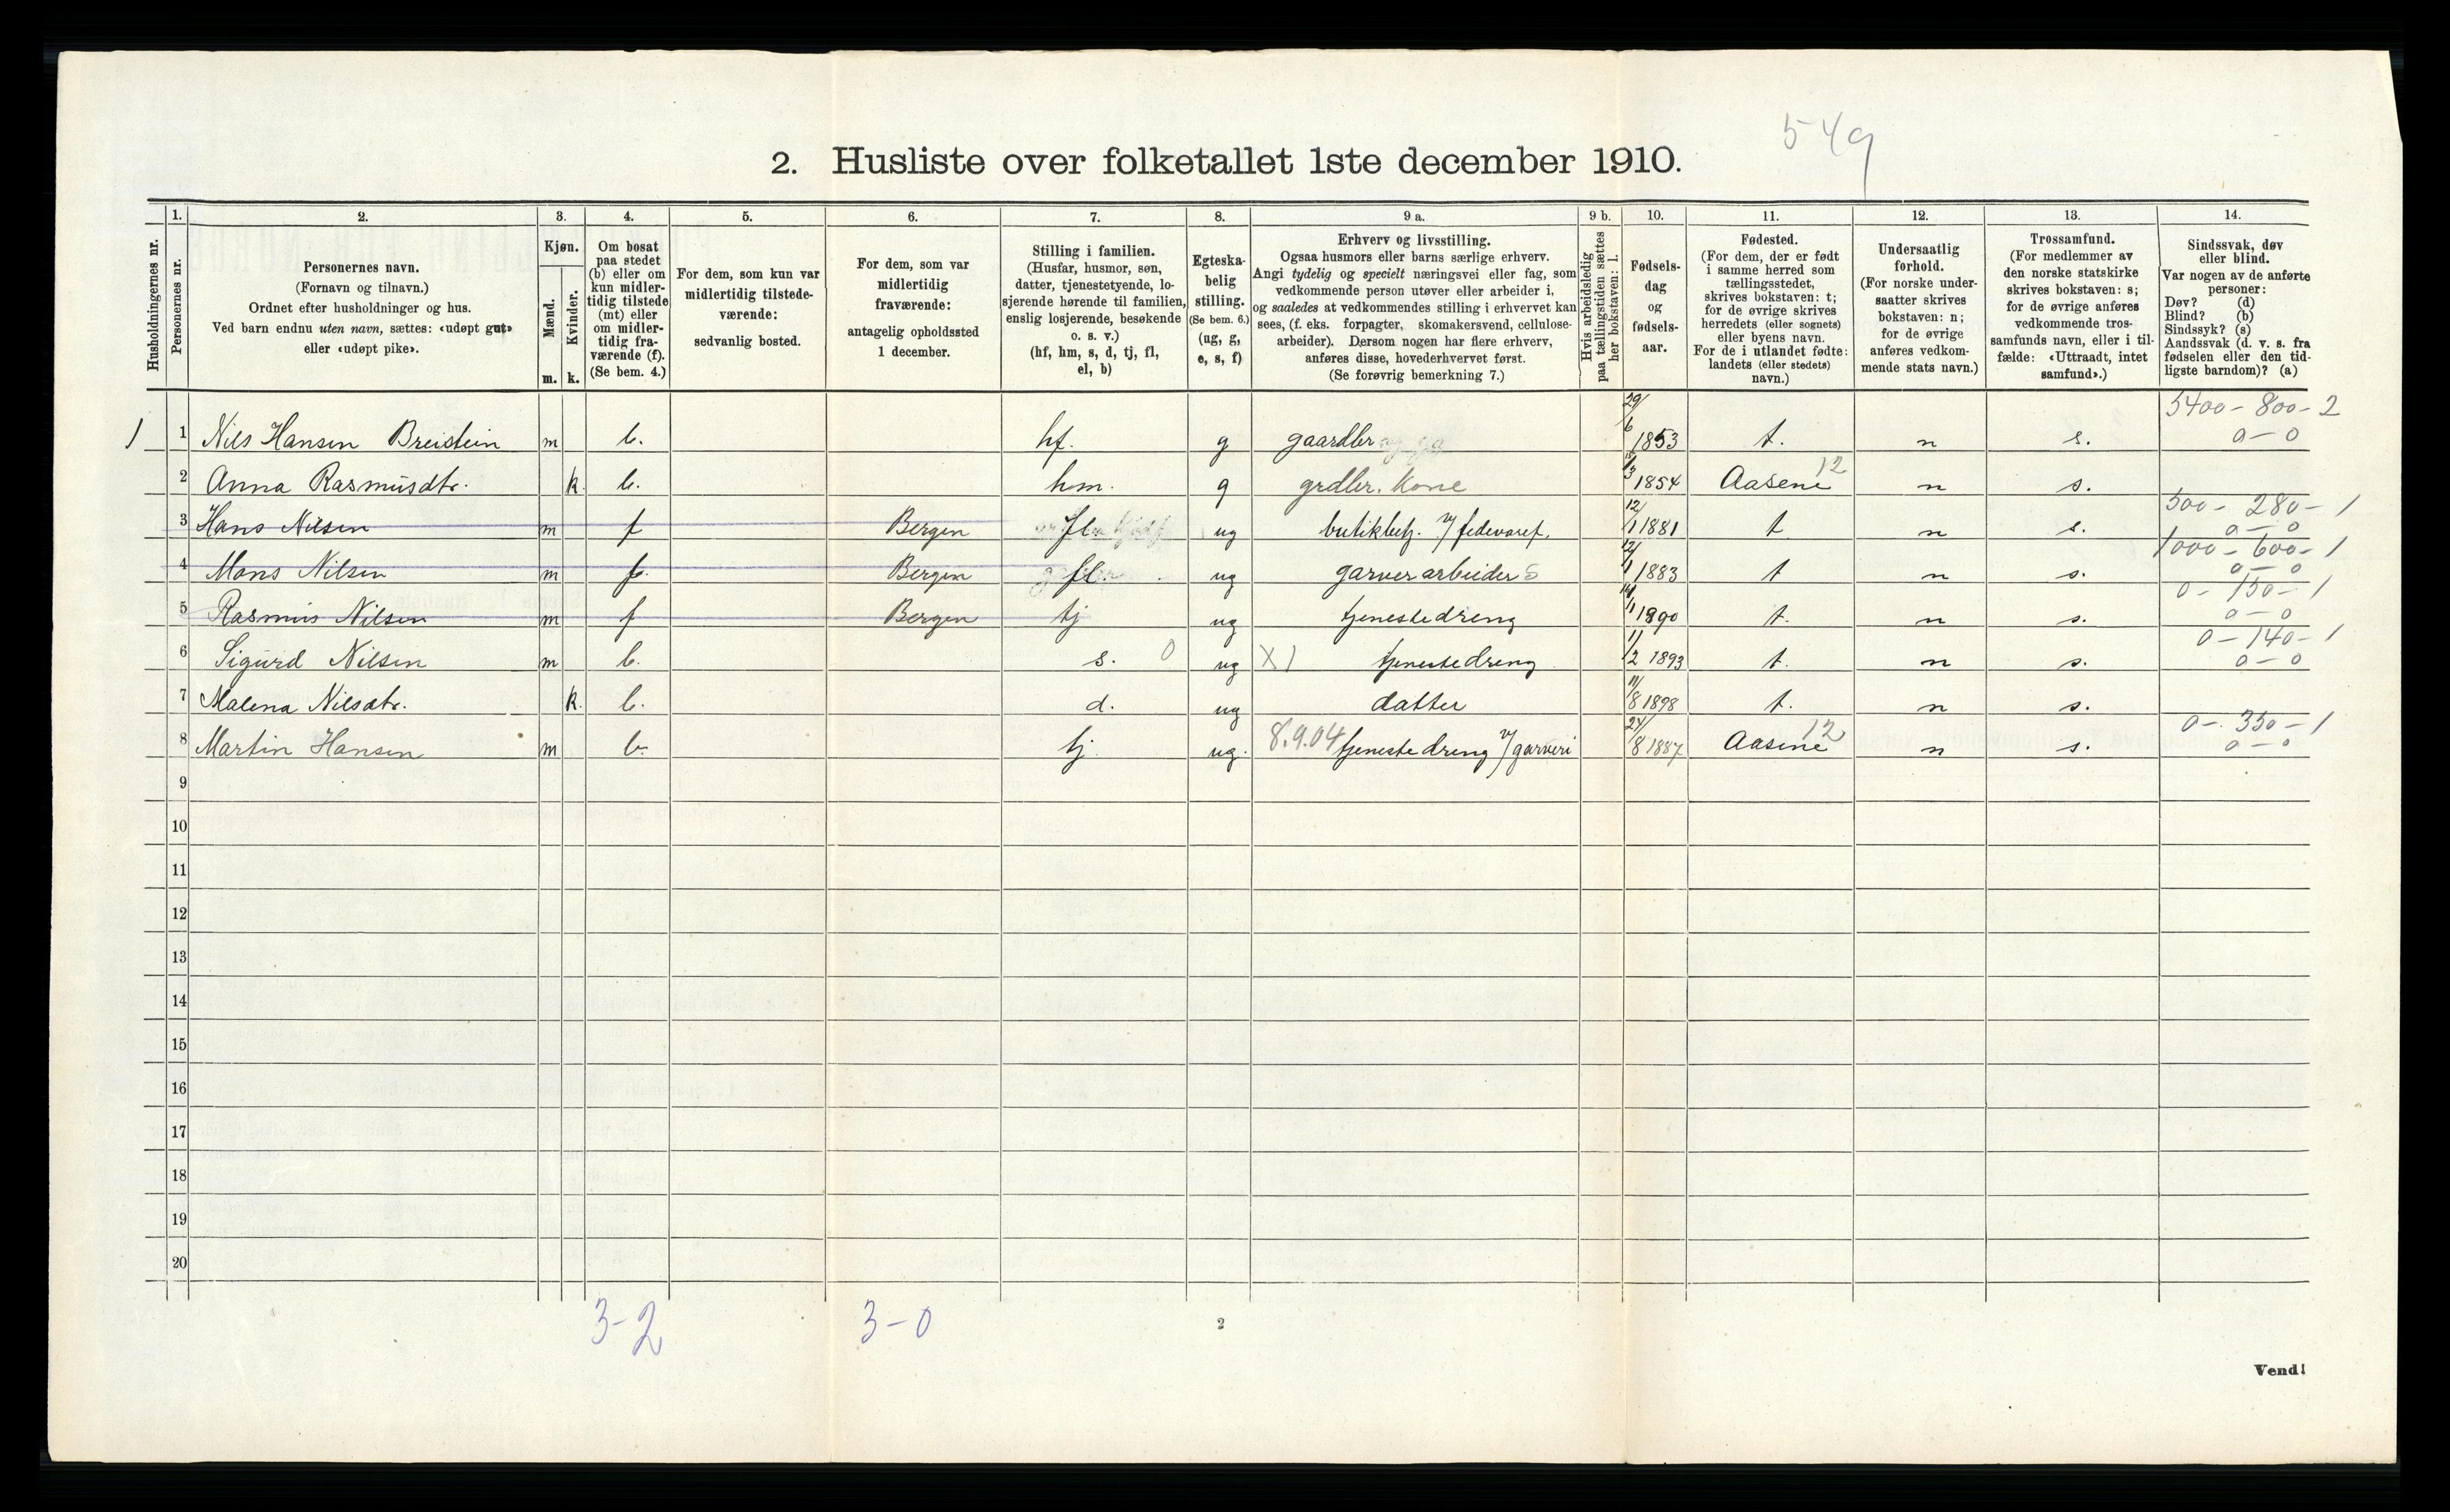 549
2. Husliste over folketallet 1ste december 1910.
Husholdningernes nr.
1.
Personernes nr.
2.
Personernes navn.
(Fornavn og tilnavn.)
Ordnet efter husholdninger og hus.
Ved barn endnu uten navn, sættes: «udøpt gut»
eller «udøpt pike».
3.
Kjøn.
Mænd.
Kvinder.
m. k.
4.
Om bosat
paa stedet
(b) eller om
kun midler-
tidig tilstede
(mt) eller
om midler-
tidig fra-
værende (f).
(Se bem. 4.)
5.
For dem, som kun var
midlertidig tilstede-
værende:
sedvanlig bosted.
6.
For dem, som var
midlertidig
fraværende:
antagelig opholdssted
1 december.
7.
Stilling i familien.
(Husfar, husmor, søn,
datter, tjenestetyende, lo-
sjerende hørende til familien,
enslig losjerende, besøkende
o. s. v.)
(hf, hm, s, d, tj, fl,
el, b)
8.
Egteska-
belig
stilling.
(Se bem. 6.)
(ug, g,
e, s, f)
9 a.
Erhverv og livsstilling.
Ogsaa husmors eller barns særlige erhverv.
Angi tydelig og specielt næringsvei eller fag, som
vedkommende person utøver eller arbeider i,
og saaledes at vedkommendes stilling i erhvervet kan
sees, (f. eks. forpagter, skomakersvend, cellulose-
arbeider). Dersom nogen har flere erhverv,
anføres disse, hovederhvervet først.
(Se forøvrig bemerkning 7.)
9 b.
Hvis arbeidsledig
paa tællingstiden sættes
her bokstaven: l.
10.
Fødsels-
dag
og
fødsels-
aar.
11.
Fødested.
(For dem, der er født
i samme herred som
tællingsstedet,
skrives bokstaven: t;
for de øvrige skrives
herredets (eller sognets)
eller byens navn.
For de i utlandet fødte:
landets (eller stedets)
navn.)
12.
Undersaatlig
forhold.
(For norske under-
saatter skrives
bokstaven: n;
for de øvrige
anføres vedkom-
mende stats navn.)
13.
Trossamfund.
(For medlemmer av
den norske statskirke
skrives bokstaven: s;
for de øvrige anføres
vedkommende tros-
samfunds navn, eller i til-
fælde: «Uttraadt, intet
samfund».)
14.
Sindssvak, døv
eller blind.
Var nogen av de anførte
personer:
Døv? (d)
Blind? (b)
Sindssyk? (s)
Aandssvak (d. v. s. fra
fødselen eller den tid-
ligste barndom)? (a)
1 1 Nils Hansen Breistein m b. hf. g gaardbr 29/6 1853 t. n s. 5400-800-2 0-0
2 Anna Rasmusdtr. k. b. hm. g grdbr. kone /3 1854 Aasene 12 n s.
3 Hans Nilsen m f Bergen fl ug butikbetj. v/ fedevaref. 12/1 1881 t n s. 500-280-1 0-0
4 Mons Nilsen m f. Bergen fl. ug garverarbeider s 12/1 1883 t n s. 1000-600-1 0-0
5 Rasmus Nilsen m f Bergen tj ug tjenestedreng 14/1 1890 t. n s. 0-150-1 0-0
6 Sigurd Nilsen m b. s. 0 ug X) tjenestedreng 11/2 1893 t. n s. 0-140-1 0-0
7 Malena Nilsdtr. k. b. d. ug datter 11/8 1898 t. n s.
8 Martin Hansen m b. tj. ug. 8.9.04 tjenestedreng v/ garveri 24/8 1887 Aasene 12 n s. 0-350-1 0-0
9
10
11
12
13
14
15
16
17
18
19
20
3-2 3-0
2
Vend!